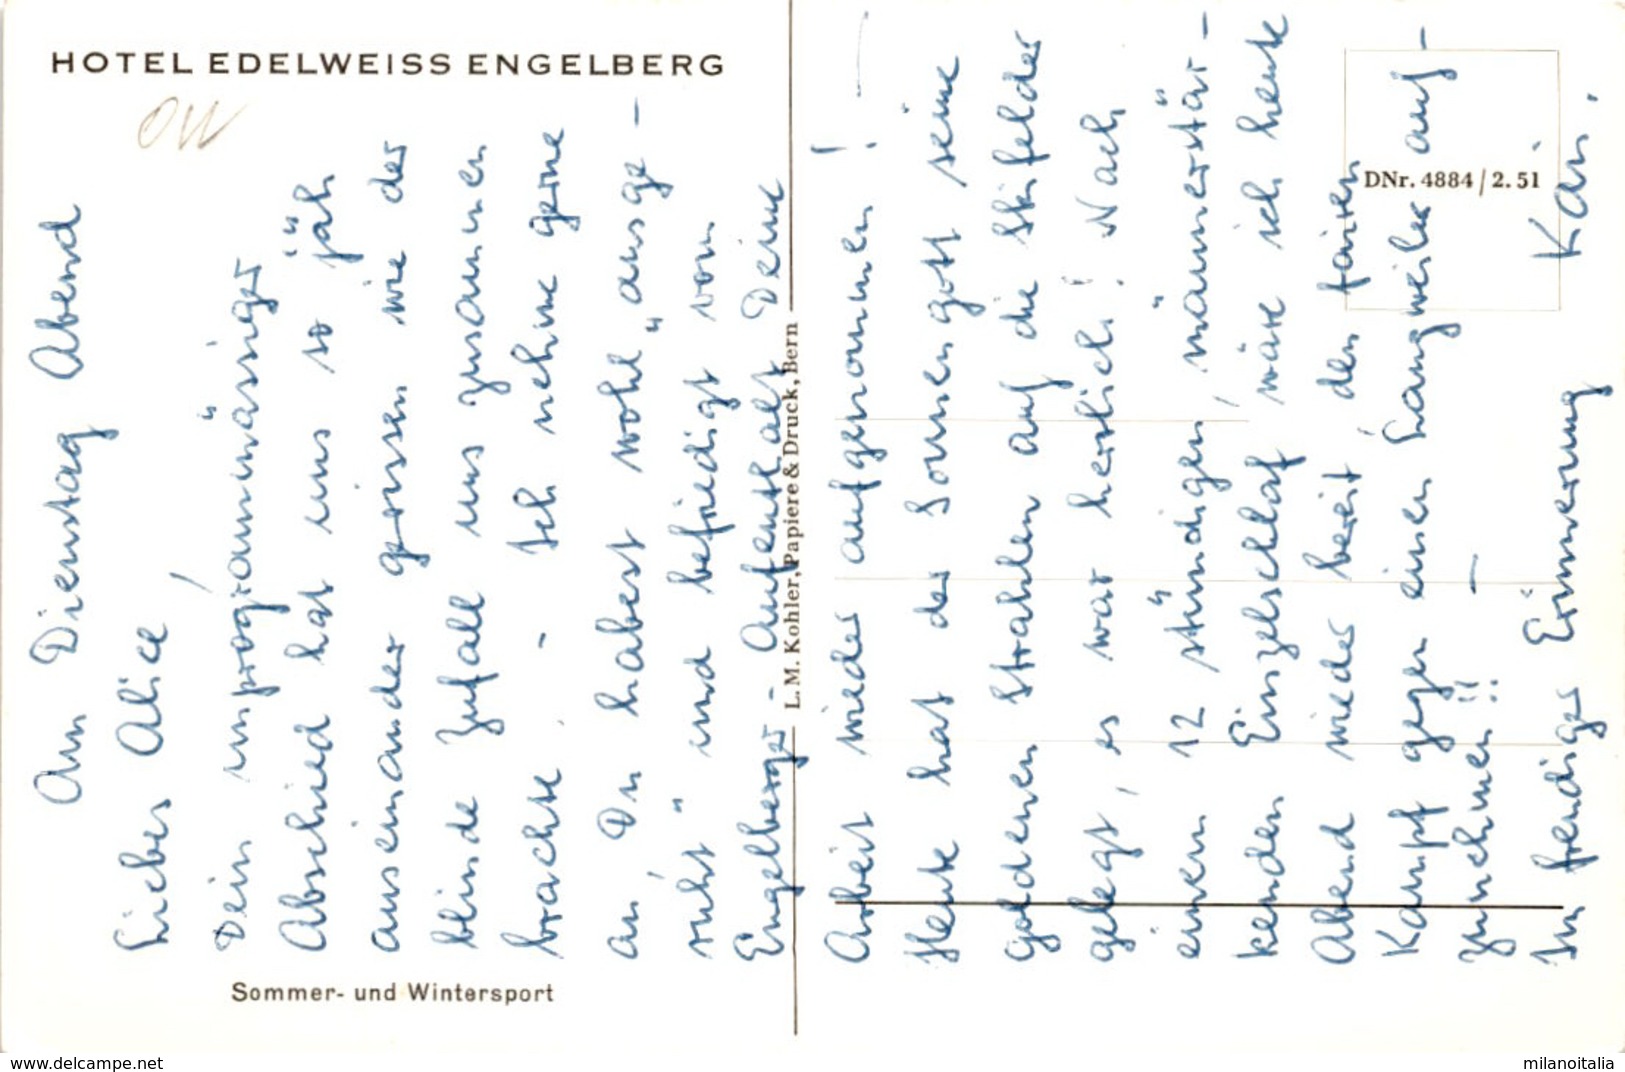 HOTEL EDELWEISS ENGELBERG
OW
Am Dienstag Abend
Liebes Alice,
Dein unprogrammässiger
Abschied hat uns so jäh
auseinander gerissen wie der
blinde Zufall uns zusammen
brachte. - Ich nehme gerne
an, Du habest wohl „ausge-
ruht" und befriedigt vom
Engelberger-Aufenthalt Deine
Arbeit wieder aufgenommen! -
Heute hat der Sonnengott seine
goldenen Strahlen auf die Skifelder
gelegt, es war herrlich! Nach
einem 12 stündigen, männerstär-
kenden Einzelschlaf wäre ich heute
Abend wieder bereit, den fairen
Kampf gegen einen Langweiler auf-
zunehmen!! -
In freudiger Erinnerung
Kari.
Sommer- und Wintersport
L. M. Kohler, Papiere & Druck, Bern
DNr. 4884 / 2. 51
https://www.delcampe.net
milanoitalia